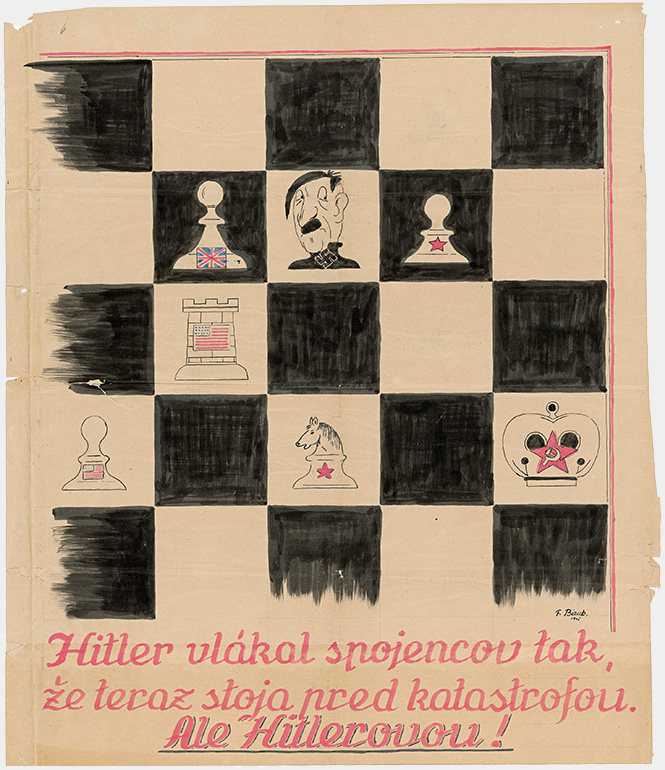 6
F. Bizub,
Hitler vlákal spojencov tak,
že teraz stoja pred katastrofou.
Ale Hitlerovou!